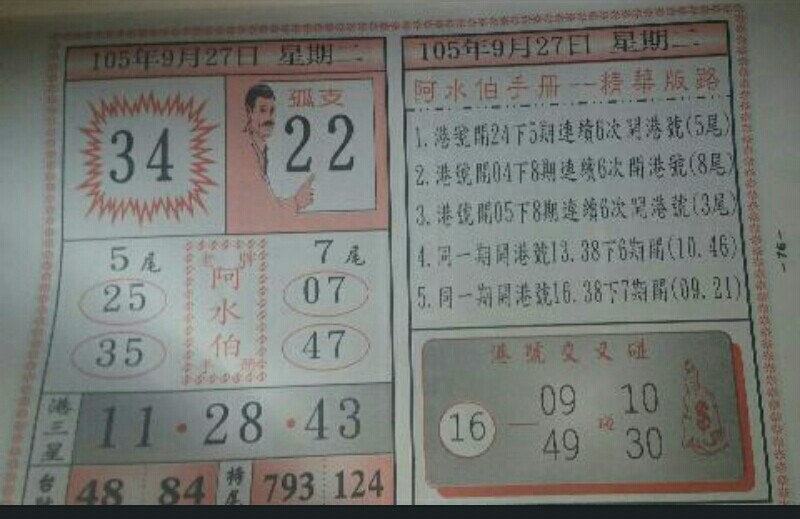 105年9月27日 星期二
34
孤支
22
5尾
25
35
7尾
07
47
阿水伯
港三星
11·28·43
48 84
793 124
105年9月27日 星期二
阿水伯手册--精華版路
1.港號開24下5期連續6次開港號(5尾)
2.港號開04下8期連續6次開港號(8尾)
3.港號開05下8期連續6次開港號(3尾)
4.同一期開港號13.38下6期開(10.46)
5.同一期開港號16.38下7期開(09.21)
港號交叉碰
16
09
49
碰
10
30
-16-